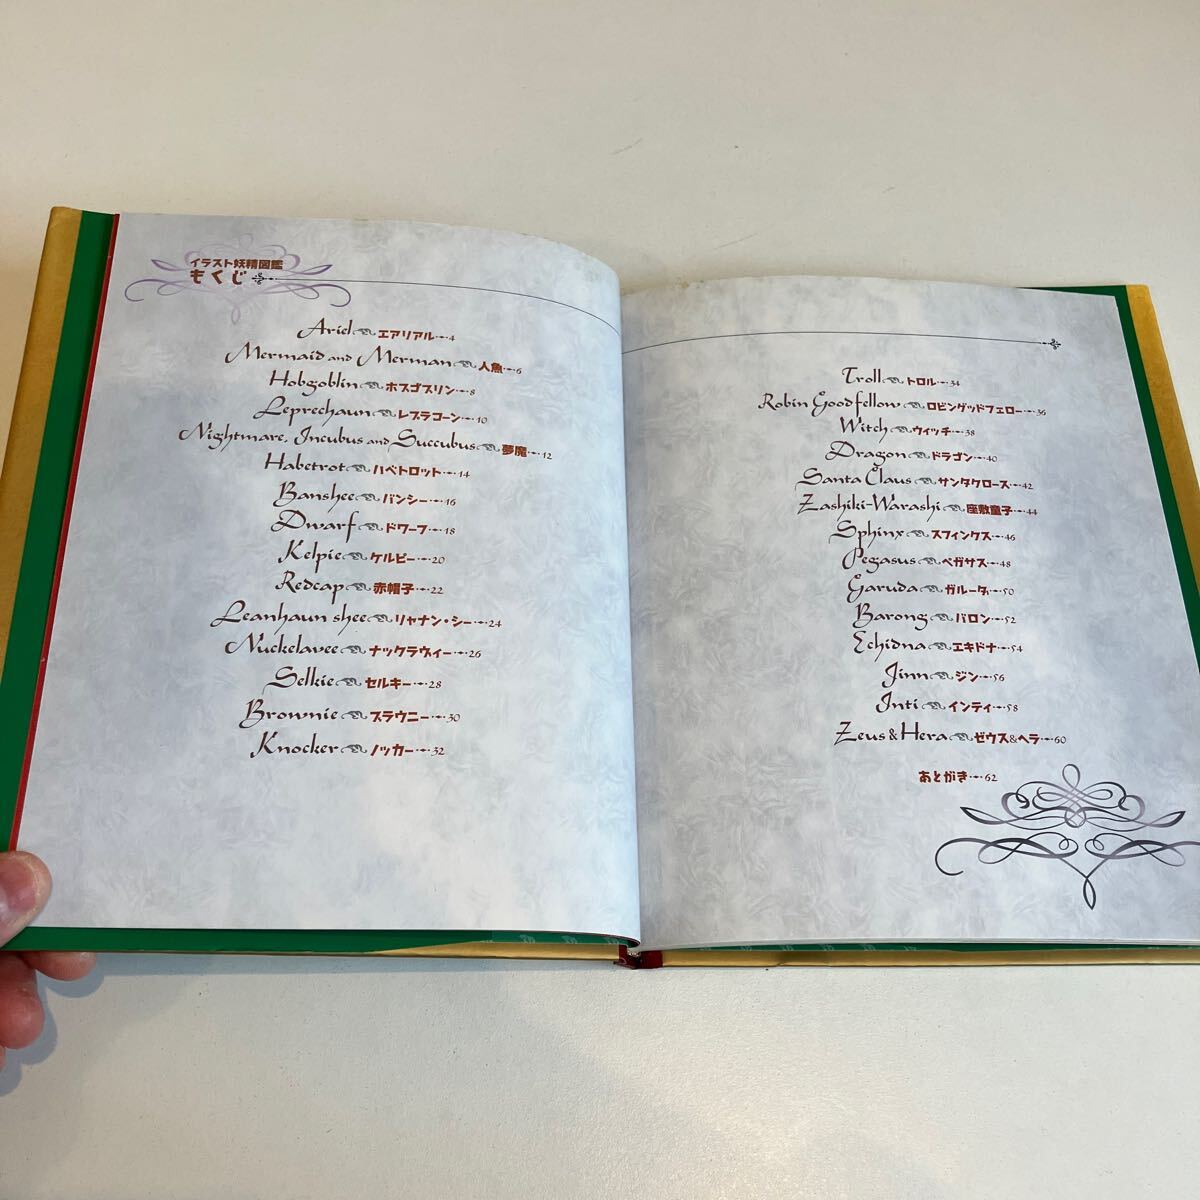 イラスト妖精図鑑
もくじ
Ariel エアリアル…4
Mermaid and Merman 人魚…6
Hobgoblin ホブゴブリン…8
Leprechaun レプラコーン…10
Nightmare, Incubus and Succubus 夢魔…12
Habetrot ハベトロット…14
Banshee バンシー…16
Dwarf ドワーフ…18
Kelpie ケルピー…20
Redcap 赤帽子…22
Leanhaun shee リャナン・シー…24
Nuckelavee ナックラヴィー…26
Selkie セルキー…28
Brownie ブラウニー…30
Knocker ノッカー…32
Troll トロル…34
Robin Goodfellow ロビングッドフェロー…36
Witch ウィッチ…38
Dragon ドラゴン…40
Santa Claus サンタクロース…42
Zashiki-Warashi 座敷童子…44
Sphinx スフィンクス…46
Pegasus ペガサス…48
Garuda ガルーダ…50
Barong バロン…52
Echidna エキドナ…54
Jinn ジン…56
Inti インティ…58
Zeus & Hera ゼウス&ヘラ…60
あとがき…62